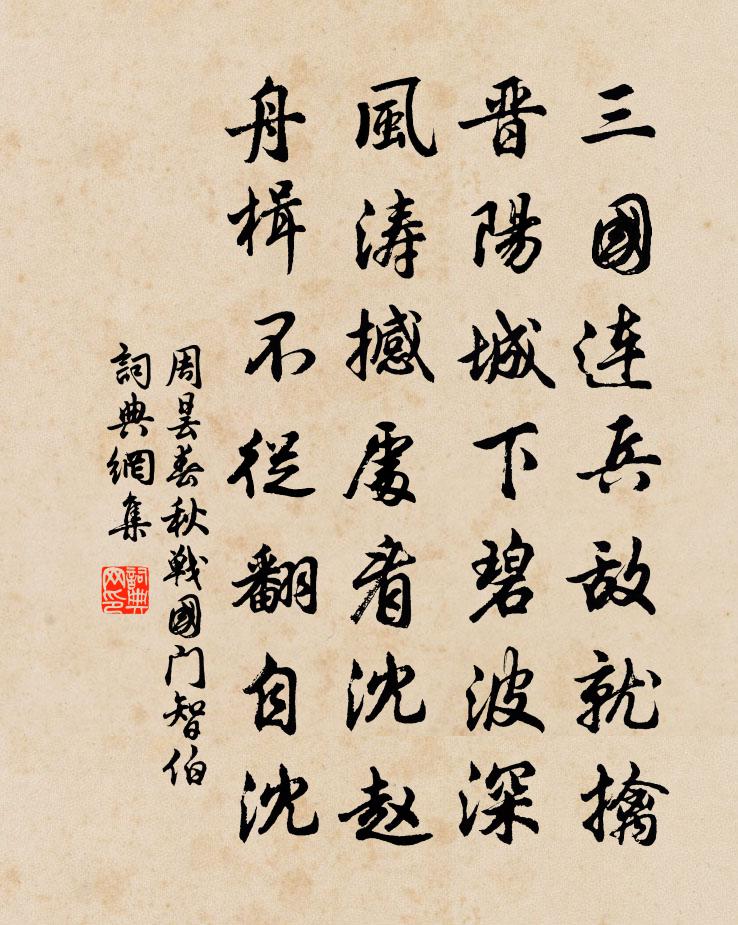 三國連兵敌就擒
晋陽城下碧波深
風涛撼處看沈赵
舟楫不從翻自沈
周昙春秋戰國门智伯
詞典網集
詞典网印